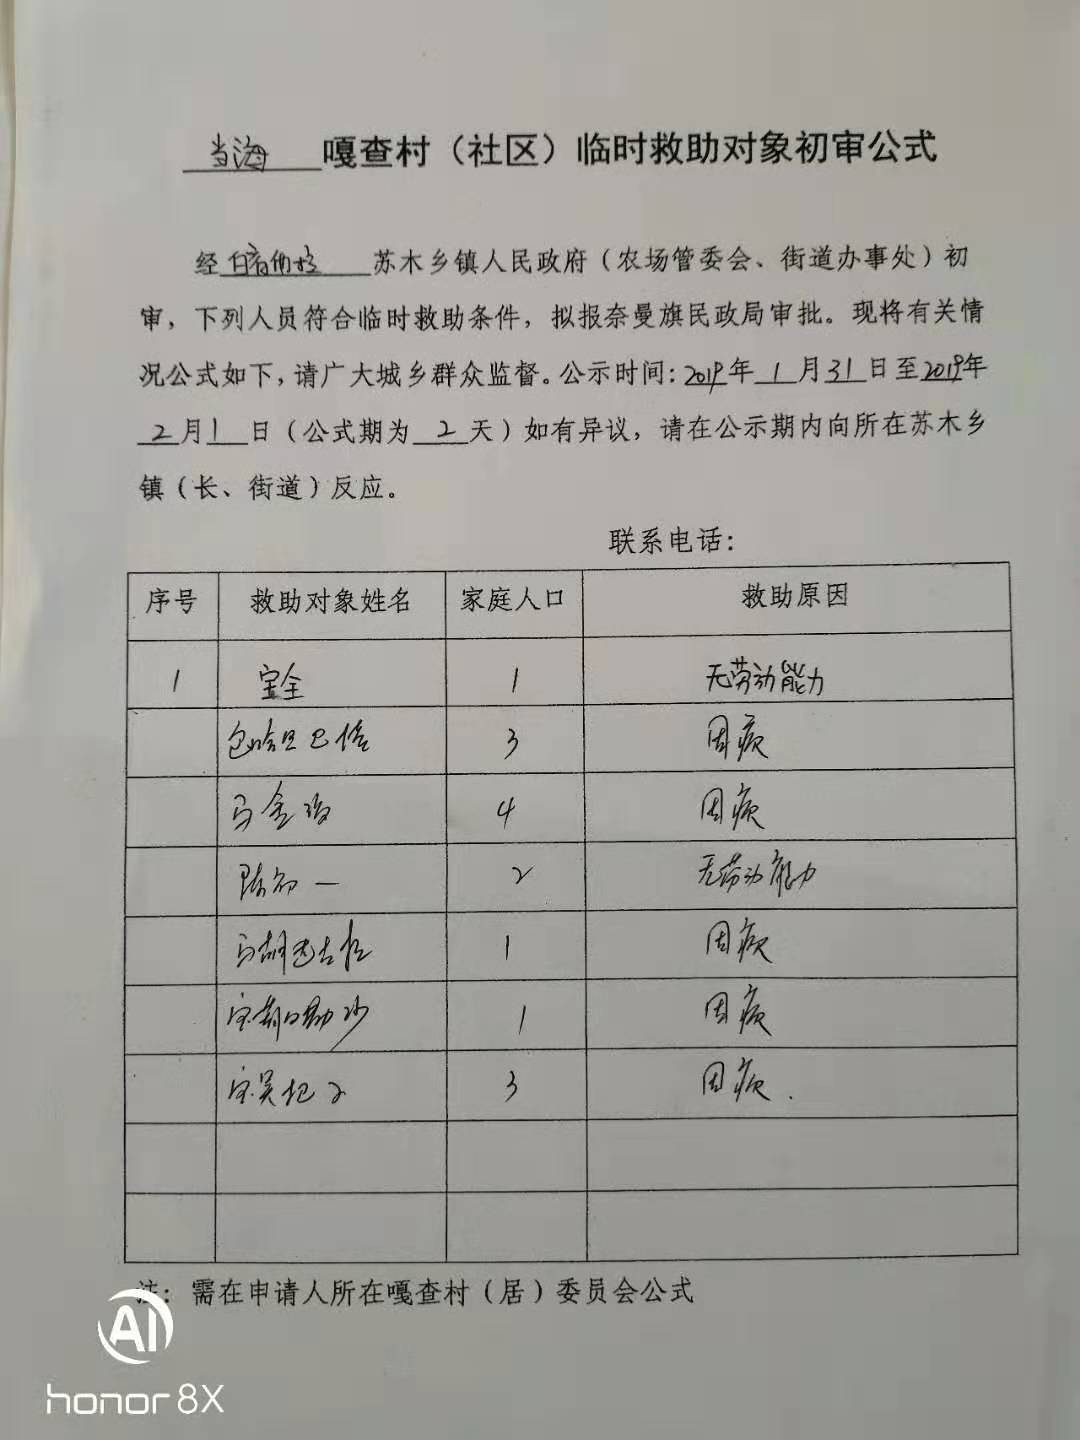 当海 嘎查村（社区）临时救助对象初审公式
经 苏木乡镇人民政府（农场管委会、街道办事处）初
审，下列人员符合临时救助条件，拟报奈曼旗民政局审批。现将有关情
况公式如下，请广大城乡群众监督。公示时间：2019年 1 月31日至2019年
2 月1 日（公式期为 2 天）如有异议，请在公示期内向所在苏木乡
镇（长、街道）反应。
联系电话：
序号 救助对象姓名 家庭人口 救助原因
1 宝全 1 无劳动能力
3 因病
4 因病
2 无劳动能力
1 因病
1 因病
3 因病.
注：需在申请人所在嘎查村（居）委员会公式
AI
honor 8X